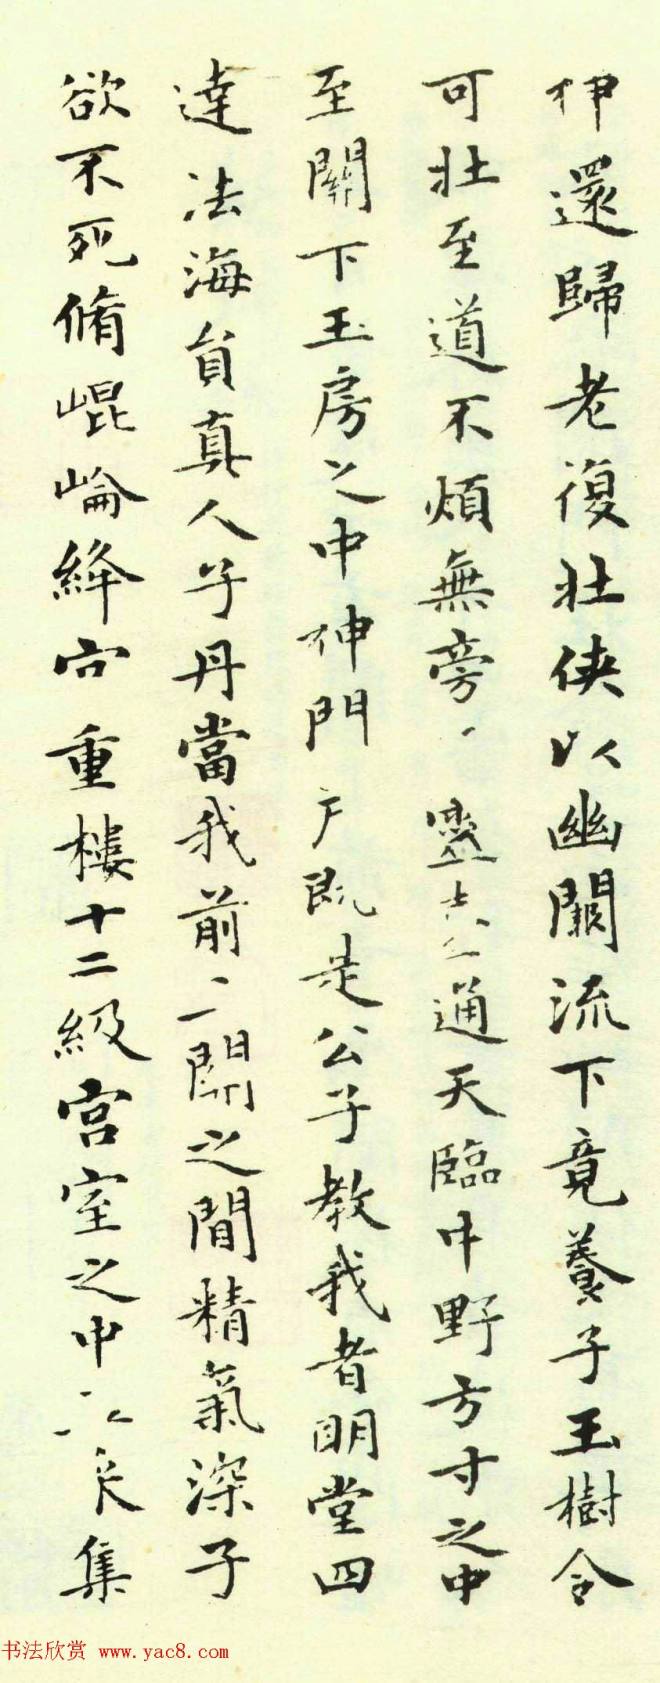 伸還歸老復壯俠以幽闕流下竟養子玉樹令
可壯至道不煩無旁靈臺通天臨中野方寸之中
至關下玉房之中神門戶既是公子教我者明堂四
達法海員真人子丹當我前二關之間精氣深子
欲不死脩崐崘絳宮重樓十二級宮室之中集
书法欣赏 www.yac8.com